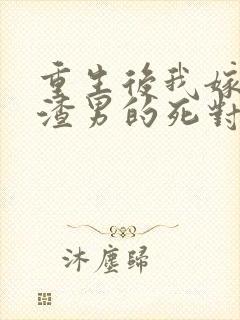 重生後我嫁
渣男的死對
沐塵歸